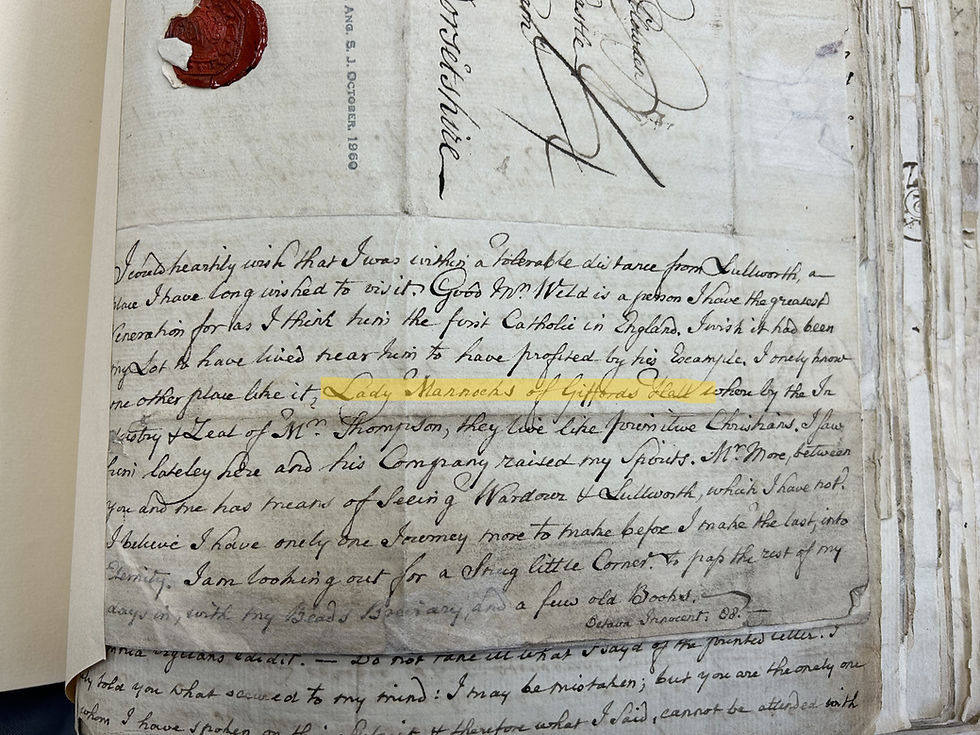 Plowden
Castle
Dorsetshire
ANG. S. J. OCTOBER. 1960
I could heartily wish that I was within a tolerable distance from Lullworth, a
place I have long wished to visit. Good Mr. Weld is a person I have the greatest
Veneration for as I think him the first Catholic in England. I wish it had been
my Lot to have lived near him to have profited by his Example. I onely know
one other place like it, Lady Mannocks of Giffords Hall where by the In
dustry & Zeal of Mr. Thompson, they live like primitive Christians. I saw
him lateley here and his Company raised my Spirits. Mr. More, between
you and me has means of seeing Wardour & Lullworth, which I have not.
I believe I have onely one Journey more to make before I make the last, into
Eternity. I am looking out for a Snug little Corner to pass the rest of my
days in, with my Beads Breviary, and a few old Books.
Octava Innocent. 88.
omnia vigilans edidit. — Do not take ill what I sayd of the printed letter. I
told you what seemed to my mind: I may be mistaken; but you are the onely one
whom I have spoken on this & therefore what I said, cannot be attended with